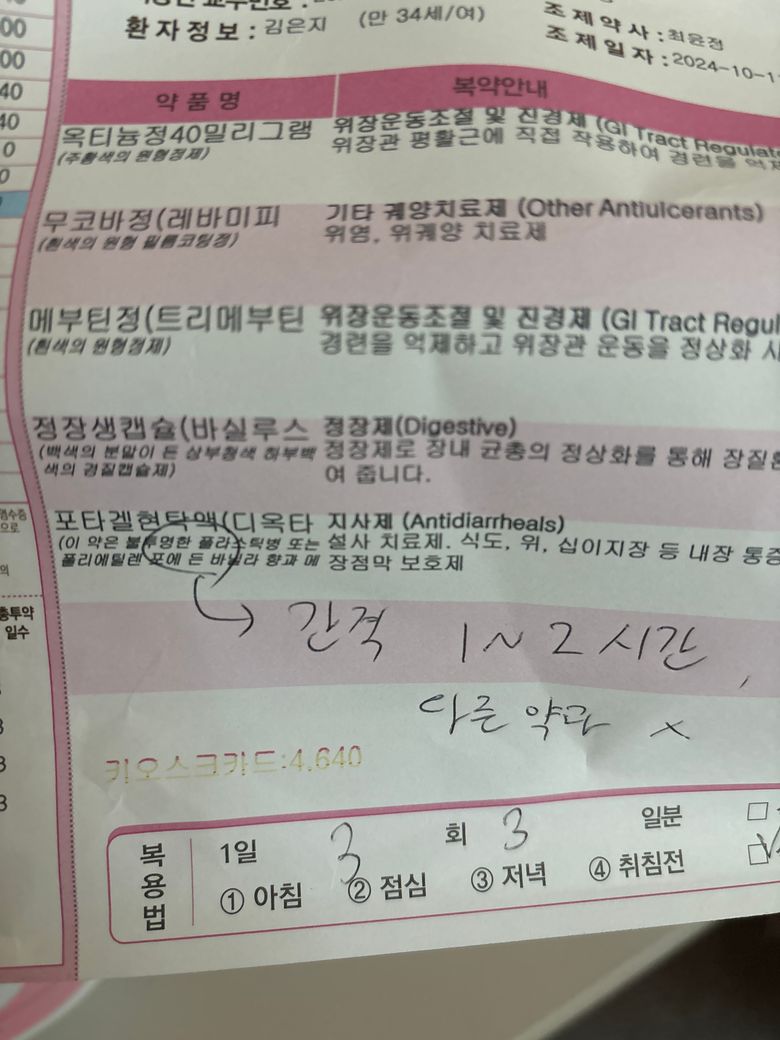 00
00
40
40
0
0
환자정보 : 김은지 (만 34세/여)
조제약사 : 최윤정
조제일자 : 2024-10-1
약품명 복약안내
옥티늄정40밀리그램 위장운동조절 및 진경제 (GI Tract Regulat
(주황색의 원형정제) 위장관 평활근에 직접 작용하여 경련을 억제
무코바정(레바미피 기타 궤양치료제 (Other Antiulcerants)
(흰색의 원형 필름코팅정) 위염, 위궤양 치료제
메부틴정(트리메부틴 위장운동조절 및 진경제 (GI Tract Regul
(흰색의 원형정제) 경련을 억제하고 위장관 운동을 정상화 시
정장생캡슐(바실루스 정장제(Digestive)
(백색의 분말이 든 상부청색 하부백 정장제로 장내 균총의 정상화를 통해 장질환
색의 경질캡슐제) 여 줍니다.
포타겔현탁액(디옥타 지사제 (Antidiarrheals)
(이 약은 불투명한 플라스틱병 또는 설사 치료제. 식도, 위, 십이지장 등 내장 통증
폴리에틸렌 포에 든 바닐라 향과 메 장점막 보호제
영수증
으로
의
총투약
일수
3
3
3
간격 1~2시간,
다른 약과 x
키오스크카드:4,640
복용법
1일 3 회 3 일분
① 아침 ② 점심 ③ 저녁 ④ 취침전